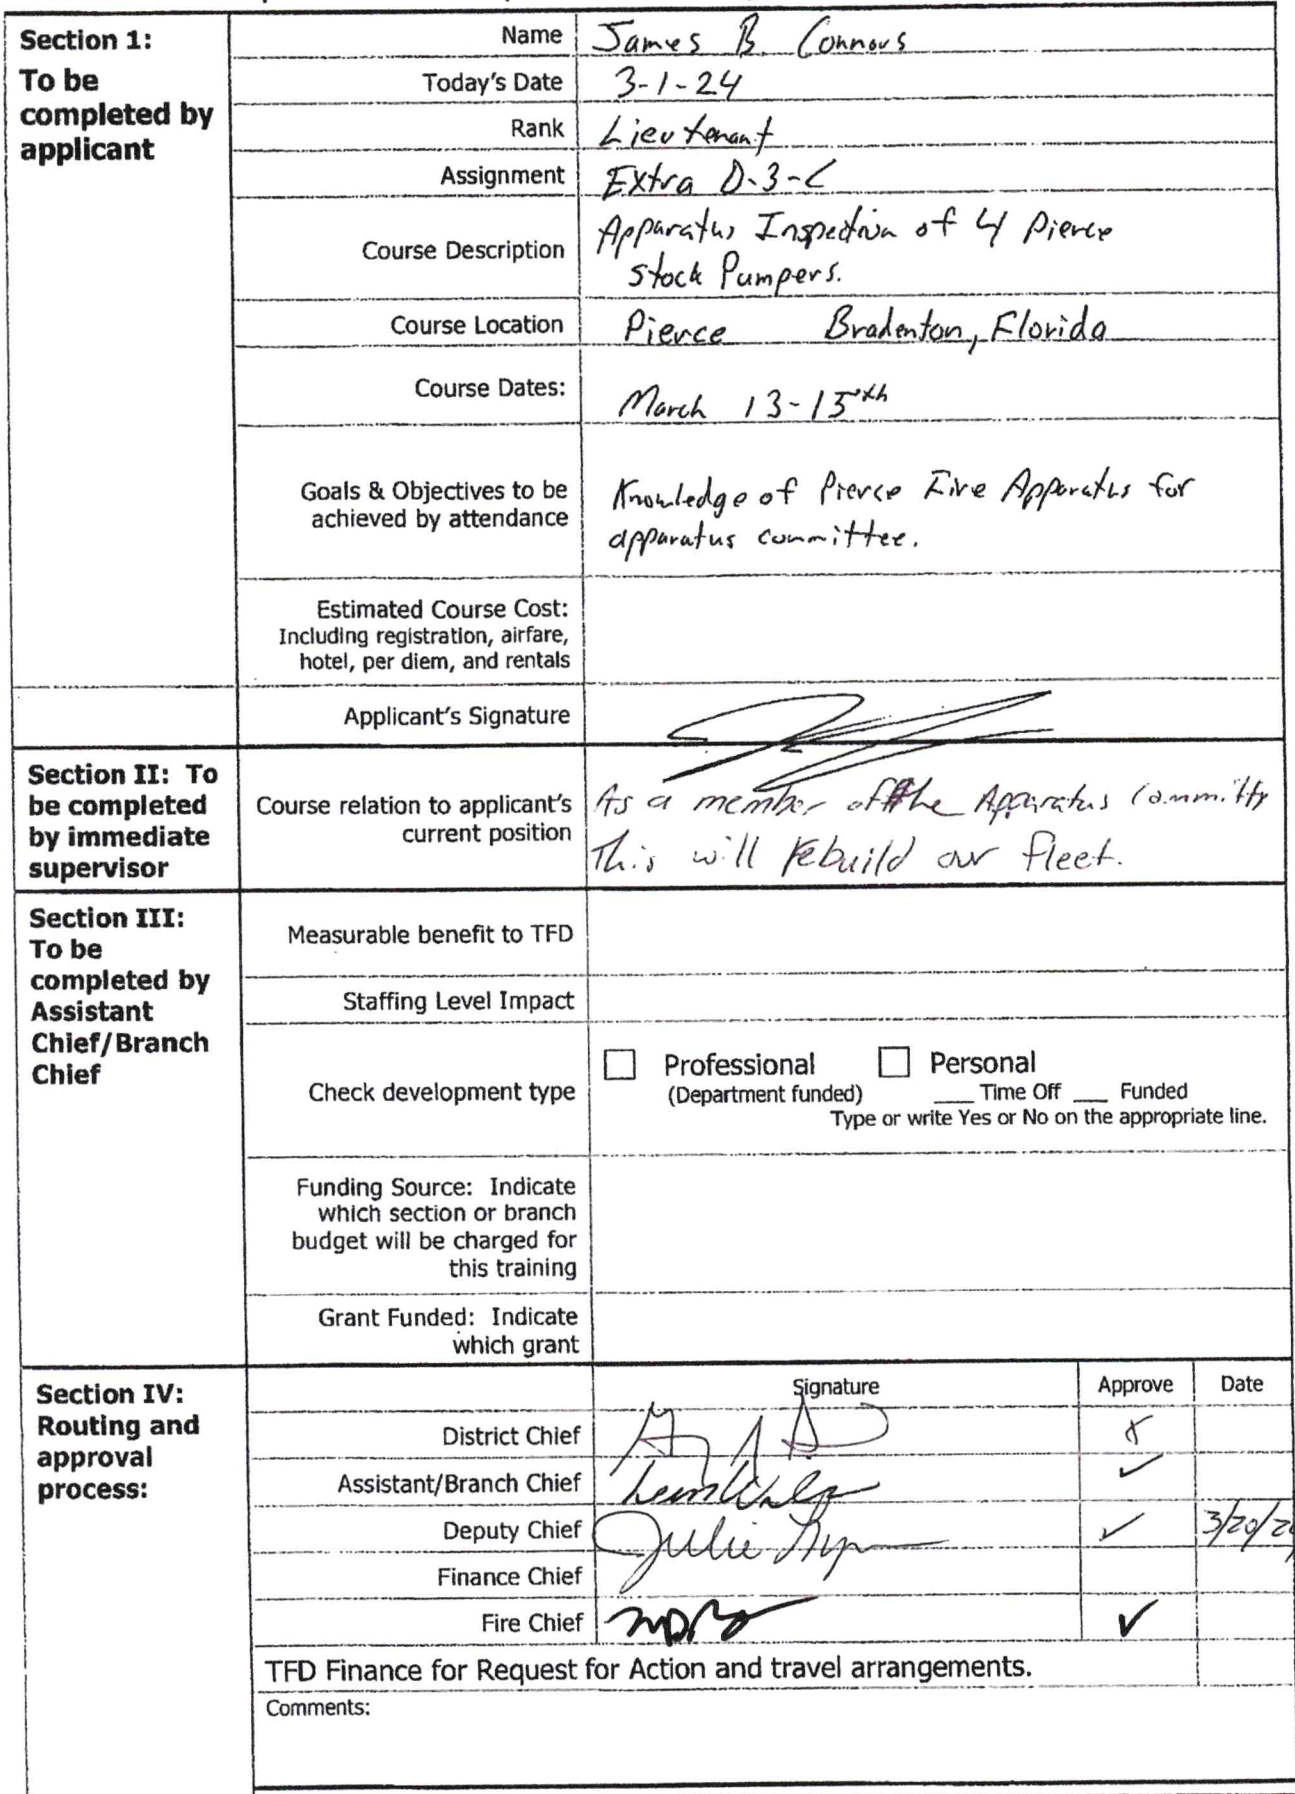 Section 1:
To be
completed by
applicant
Name James B. Connors
Today's Date 3-1-24
Rank Lieutenant
Assignment Extra D-3-C
Course Description Apparatus Inspection of 4 Pierce
stock Pumpers.
Course Location Pierce Bradenton, Florida
Course Dates: March 13-15th
Goals & Objectives to be
achieved by attendance
Knowledge of Pierce Fire Apparatus for
apparatus committee.
Estimated Course Cost:
Including registration, airfare,
hotel, per diem, and rentals
Applicant's Signature
Section II: To
be completed
by immediate
supervisor
Course relation to applicant's
current position
As a member of the Apparatus Committy
This will rebuild our fleet.
Section III:
To be
completed by
Assistant
Chief/Branch
Chief
Measurable benefit to TFD
Staffing Level Impact
Check development type
Professional Personal
(Department funded) ___ Time Off ___ Funded
Type or write Yes or No on the appropriate line.
Funding Source: Indicate
which section or branch
budget will be charged for
this training
Grant Funded: Indicate
which grant
Section IV:
Routing and
approval
process:
Signature Approve Date
District Chief
Assistant/Branch Chief ✓
Deputy Chief Julie ✓ 3/20/24
Finance Chief
Fire Chief ✓
TFD Finance for Request for Action and travel arrangements.
Comments: